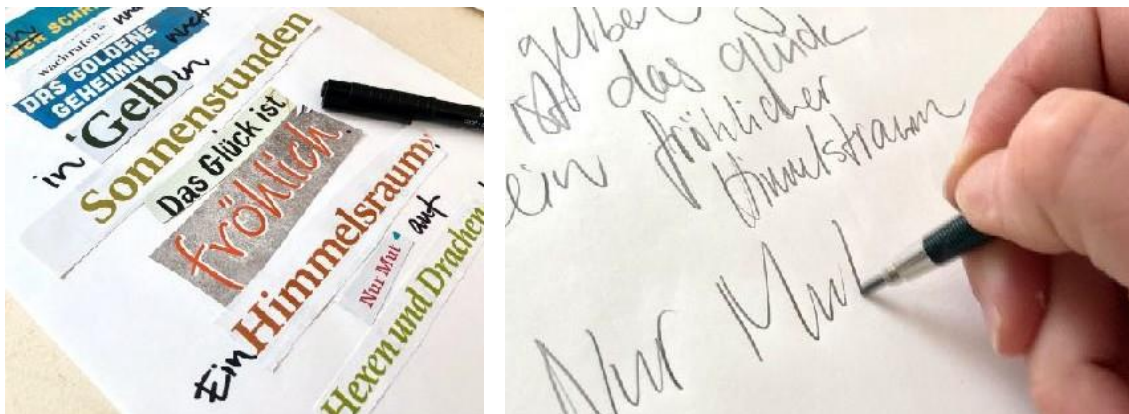 wachrufen"
DAS GOLDENE
GEHEIMNIS nach
in Gelb in
Sonnenstunden
Das Glück ist
fröhlich.
Ein Himmelsraum
Nur Mut auf
Hexen und Drachen
gelber
ist das glück
ein fröhlicher
Himmelstraum
Nur Mut